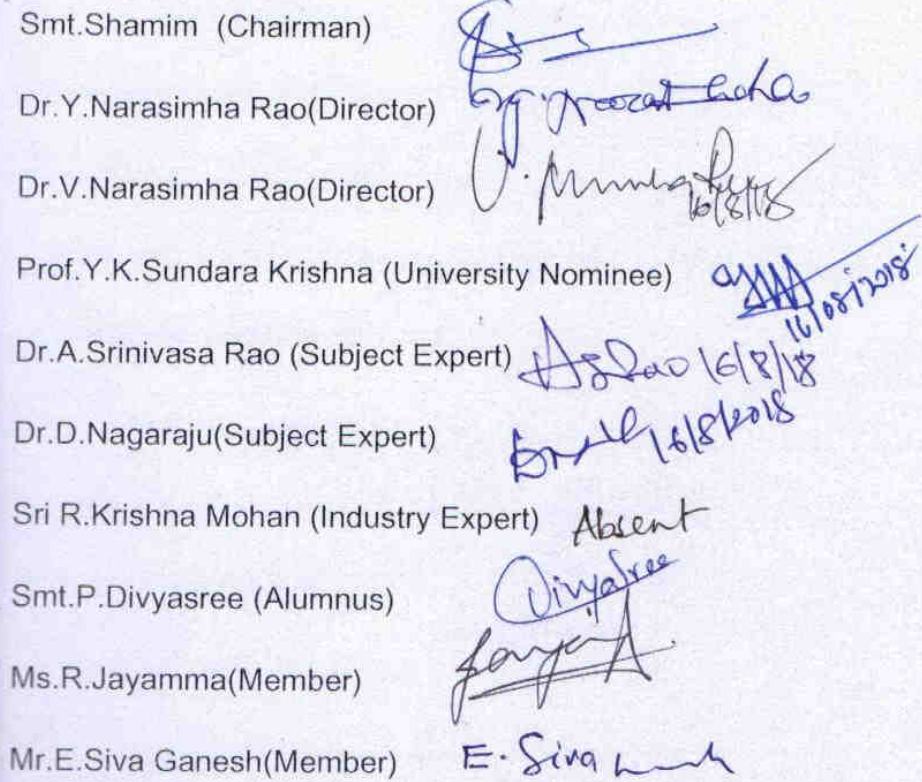 Smt.Shamim (Chairman)
Dr.Y.Narasimha Rao(Director)
Dr.V.Narasimha Rao(Director) 16/8/18
Prof.Y.K.Sundara Krishna (University Nominee) 16/08/2018
Dr.A.Srinivasa Rao (Subject Expert) 16/8/18
Dr.D.Nagaraju(Subject Expert) 16/8/2018
Sri R.Krishna Mohan (Industry Expert) Absent
Smt.P.Divyasree (Alumnus) Divyasree
Ms.R.Jayamma(Member)
Mr.E.Siva Ganesh(Member) E. Siva